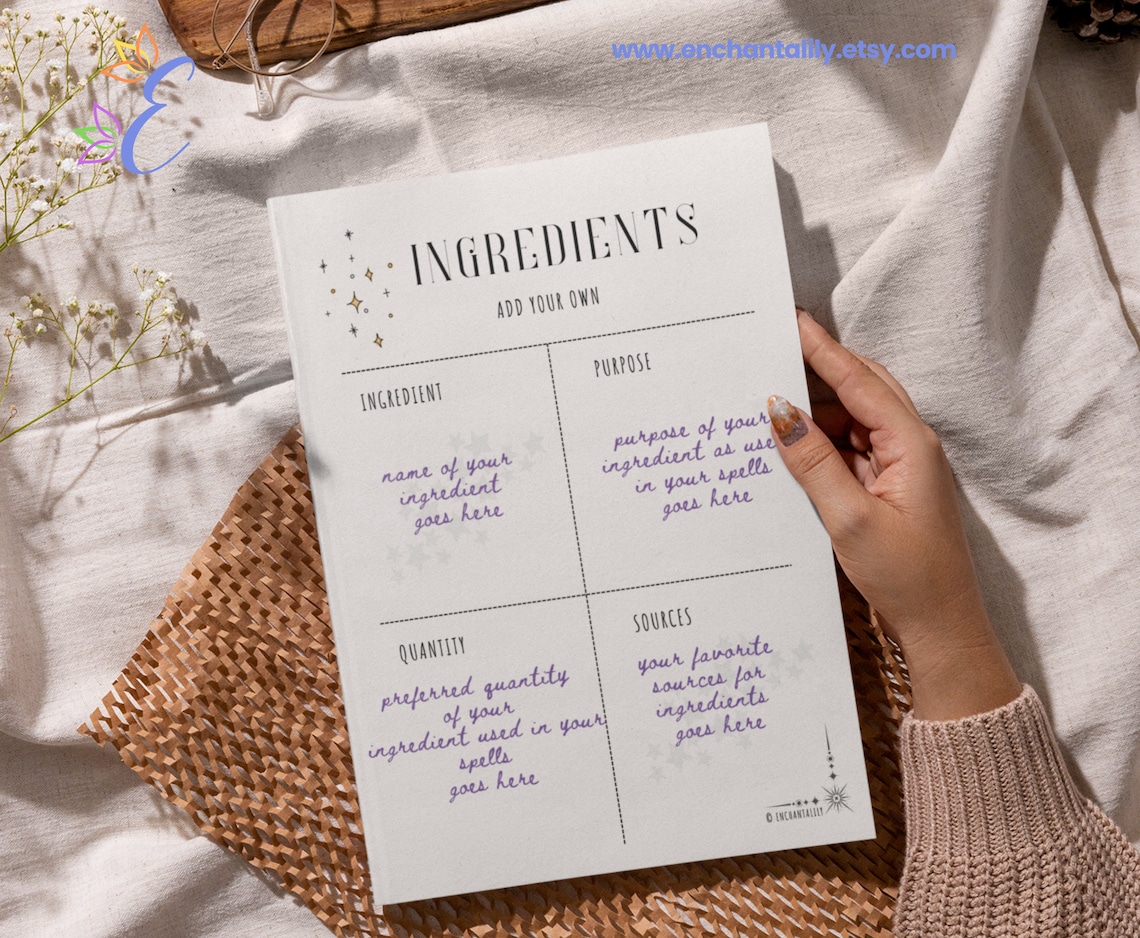 www.enchantailly.etsy.com
E
INGREDIENTS
ADD YOUR OWN
INGREDIENT
name of your
ingredient
goes here
PURPOSE
purpose of your
ingredient as use
in your spells
goes here
QUANTITY
preferred quantity
of your
ingredient used in your
spells
goes here
SOURCES
your favorite
sources for
ingredients
goes here
© ENCHANTAILLY